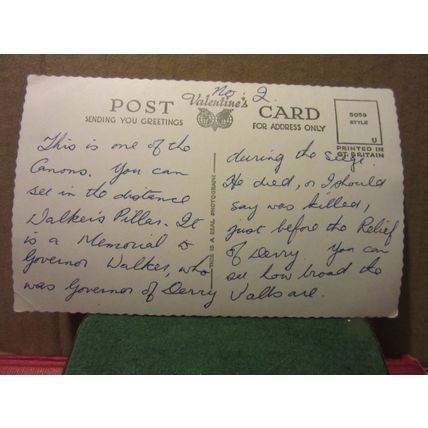 No. 2.
POST Valentine's CARD
SENDING YOU GREETINGS
FOR ADDRESS ONLY
5059
STYLE
U
PRINTED IN
GT. BRITAIN
THIS IS A REAL PHOTOGRAPH
This is one of the
Canons. You can
see in the distance
Walker's Pillar. It
is a Memorial to
Governor Walker, who
was Governor of Derry
during the seige.
He died, or I should
say was killed,
just before the Relief
of Derry. You can
see how broad the
Walls are.